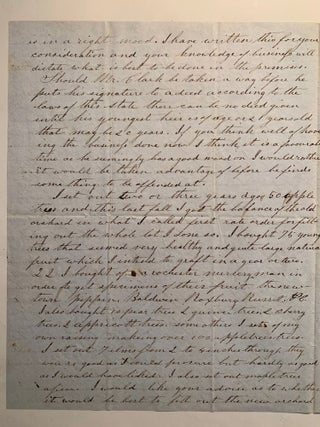 is in a right mood. I have written this for your
consideration and your knowledge of business will
dictate what is best to be done in the premises.
Should Mr. Clark be taken a way before he
puts his signature to a deed according to the
laws of this state there can be no deed given
until his youngest heir is of age or 21 years old
that may be 20 years. If you think well of hav
ing the business done now I think it is a
time as he seemingly has a good mood on I would rather
it would be taken advantage of before he finds
some thing to be offended at.
I set out two or three years ago 50 apple
trees and this last fall I got the balance of the old
orchard in what I called first rate order for fill
ing out the whole lot I done so. I bought 75 young
trees that seemed very healthy and quite large natural
fruit which I intend to graft in a year or two.
22 I bought of a Rochester nurseryman in
order to get specimens of their fruit
town pippin, Baldwin Roxbury Russet, &c
I also bought 10 pear trees 2 quince trees 2 cherry
trees 2 appricott trees. some others I set of my
own raising making over 100 apple trees trees.
I set out 7 elms from 2 to 4 inches through they
was as good as I could procure but hardly as good
as I would have liked. I also set out maple trees
a few. I would like your advise as to whether
it would be best to fill out the new orchard